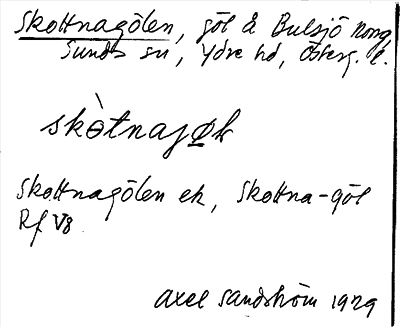 Skottnagölen, göl å Bulsjö norrg.
Sunds sn, Ydre hd, Österg. l.
skòtnajøl
Skottnagölen ek, Skottna-göl
Rf V8
Axel Sandström 1929